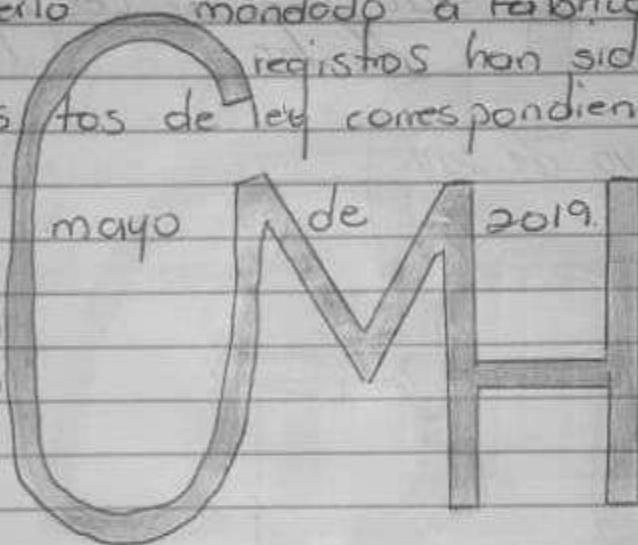 mandado a
registros han sid
tos de ley correspondien
mayo de 2019.
CMH